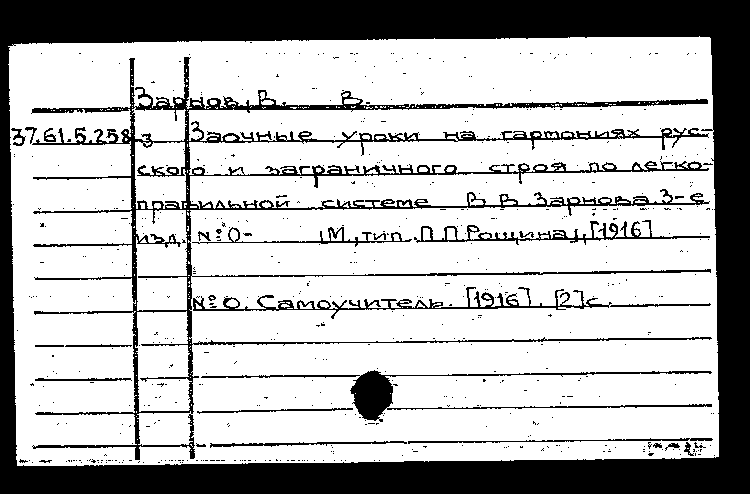 Зарнов, В. В.
37.61.5.258 3 Заочные уроки на гармониях рус-
ского и заграничного строя по легко-
правильной системе В.В. Зарнова. 3-е
изд. №0- [М., тип. П.П. Рощина], [1916]
№0. Самоучитель. [1916]. [2] с.